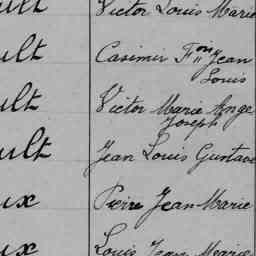 ult Victor Louis Marie
ult Casimir F^(ois) Jean
Louis
ult Victor Marie Ange
Joseph
ult Jean Louis Gustave
ux Pierre Jean Marie
ux Louis Jean Marie